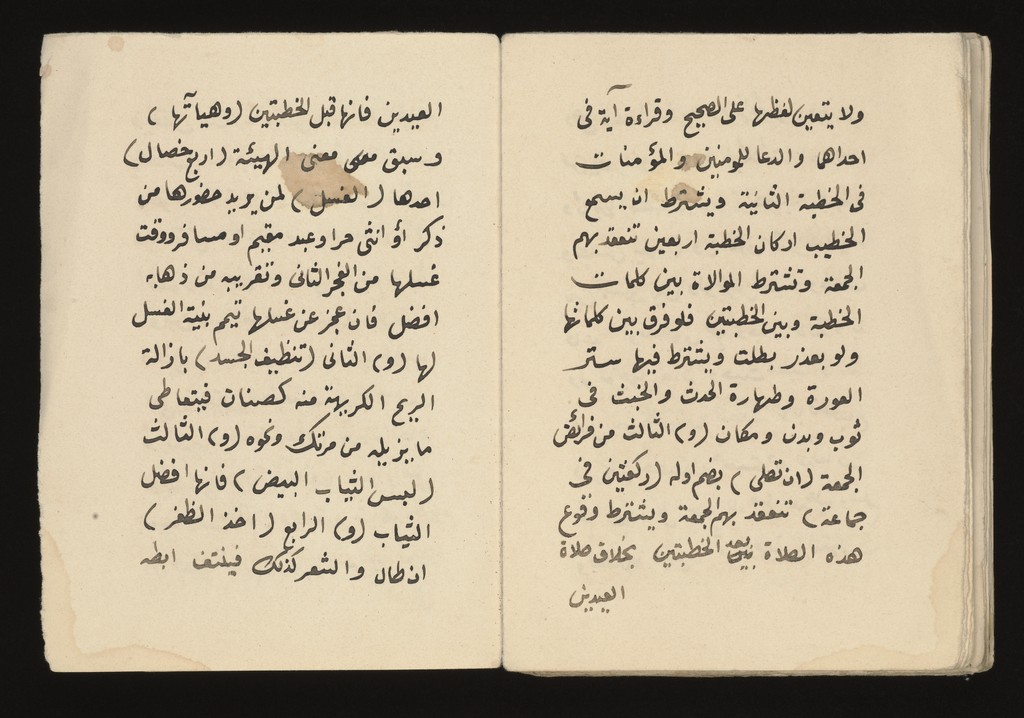 ولا يتعين لفظها على الصحيح وقراءة آية فى
احداهما والدعا للمومنين والمؤمنات
فى الخطبة الثانية ويشترط ان يسمع
الخطيب اركان الخطبة اربعين تنعقد بهم
الجمعة وتشترط الموالاة بين كلمات
الخطبة وبين الخطبتين فلو فرق بين كلماتها
ولو بعذر بطلت ويشترط فيها ستر
العورة وطهارة الحدث والخبث فى
ثوب وبدن ومكان (و) الثالث من فرائض
الجمعة (ان تصلى) بضم اوله (ركعتين فى
جماعة) تنعقد بهم الجمعة ويشترط وقوع
هذه الصلاة بعد الخطبتين بخلاف صلاة
العيدين
العيدين فانها قبل الخطبتين (وهيآتها)
وسبق معنى الهيئة (اربع خصال)
احدها (الغسل) لمن يريد حضورها من
ذكر أو انثى حر او عبد مقيم او مسافر ووقت
غسلها من الفجر الثانى وتقريبه من ذهابه
افضل فان عجز عن غسلها تيمم بنية الغسل
لها (و) الثانى (تنظيف الجسد) بازالة
الريح الكريهة منه كصنان فيتعاطى
ما يزيله من مرتك ونحوه (و) الثالث
(لبس الثياب البيض) فانها افضل
الثياب (و) الرابع (اخذ الظفر)
ان طال والشعر كذلك فينتف ابطه